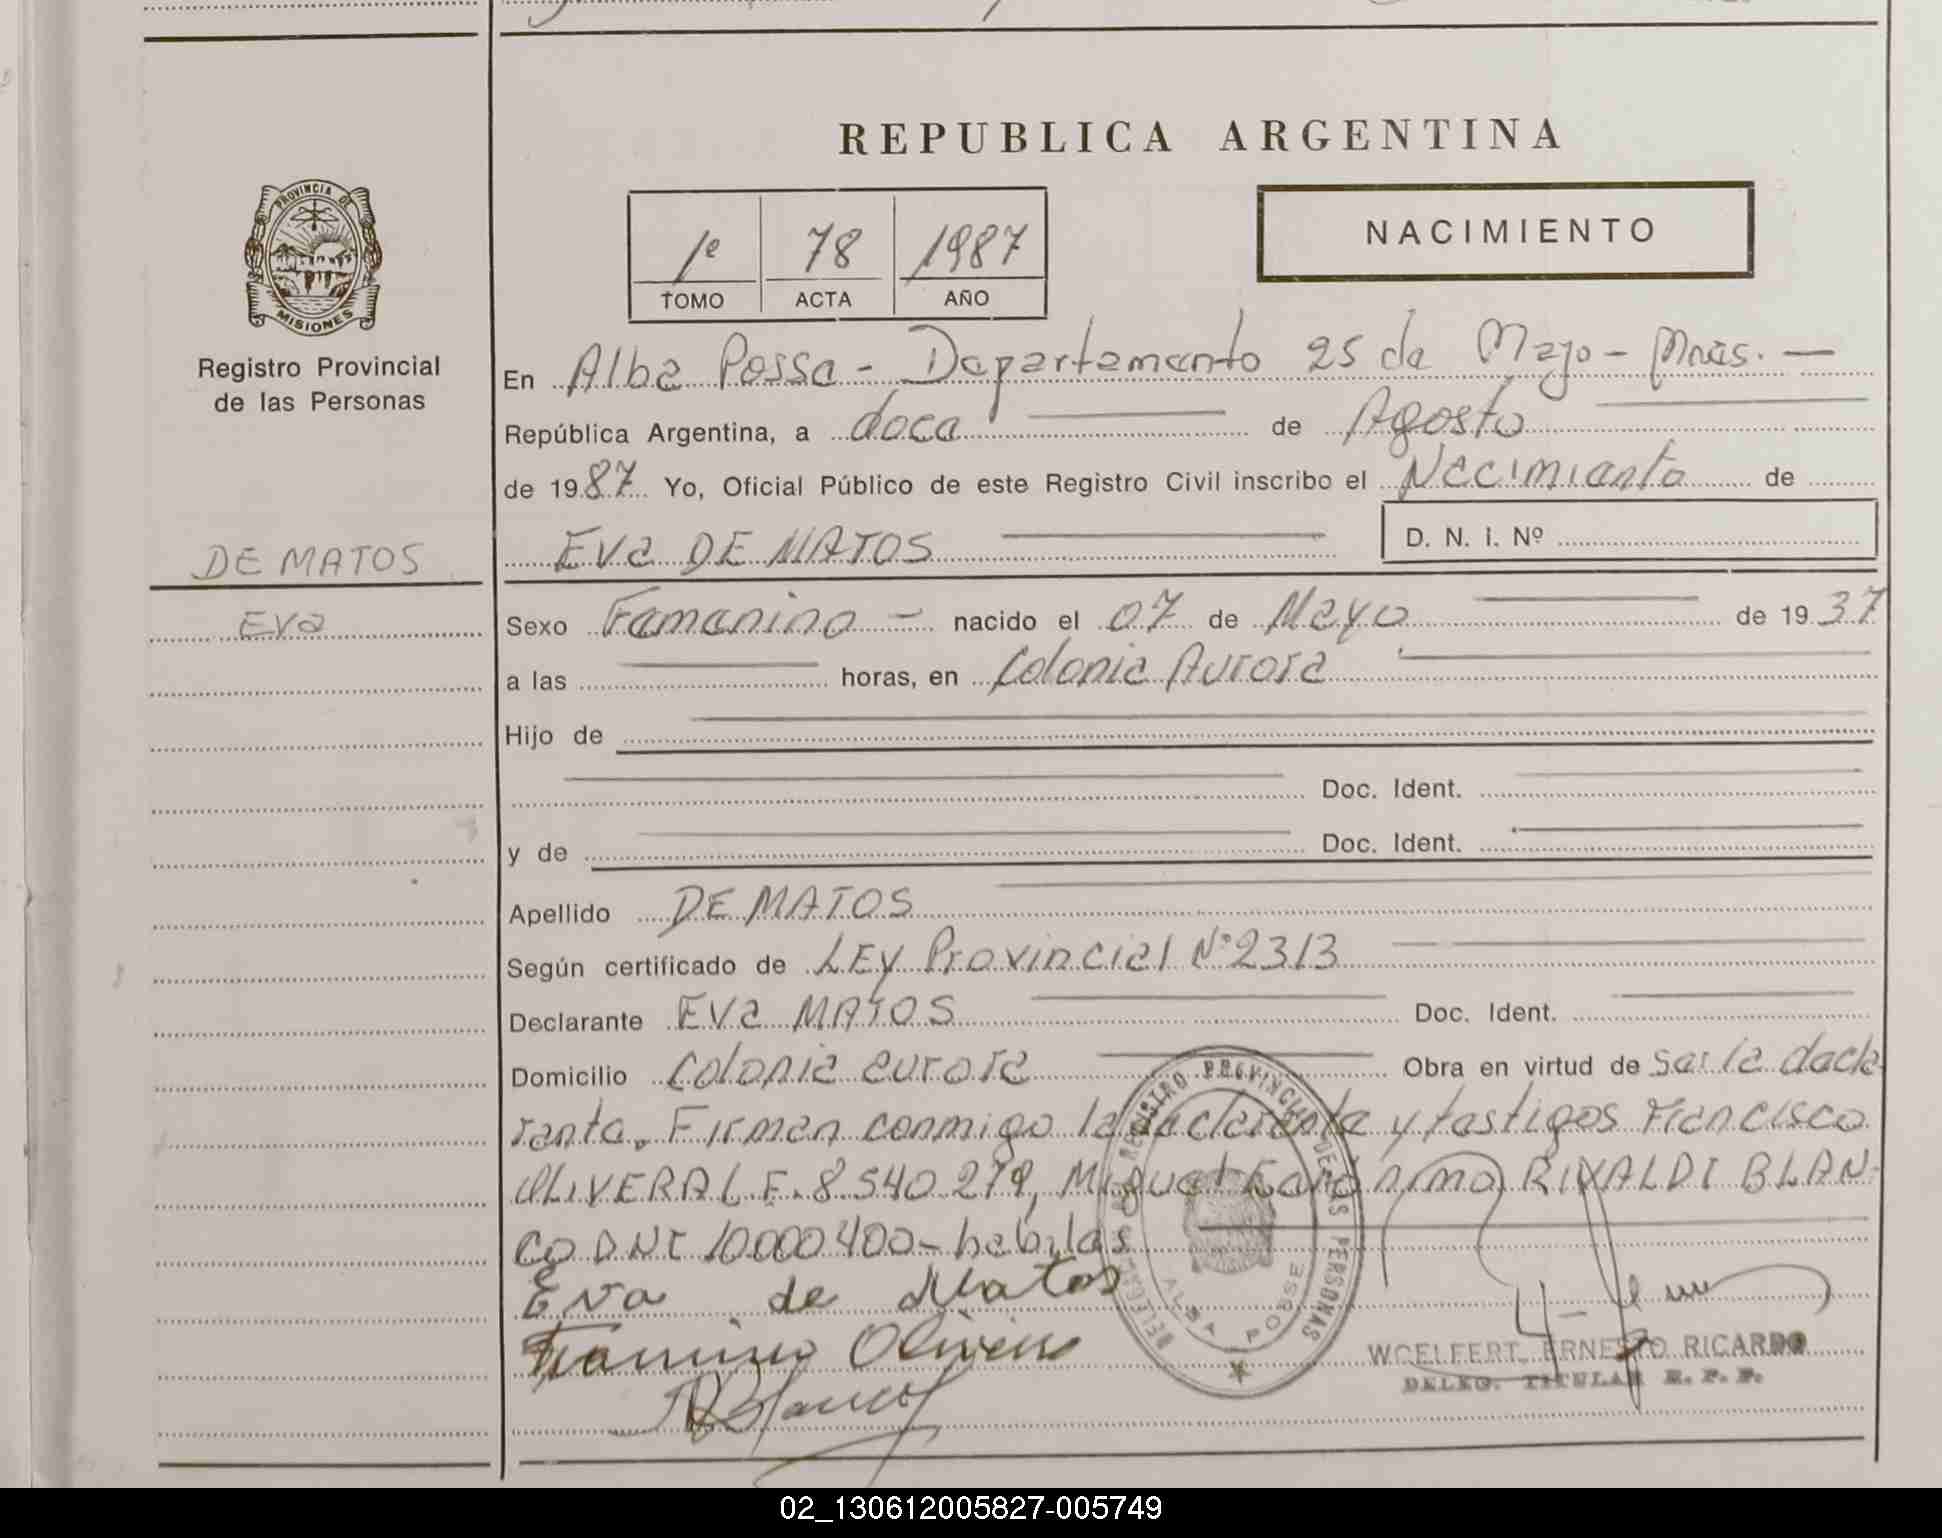 REPUBLICA ARGENTINA
PROVINCIA DE
MISIONES
Registro Provincial
de las Personas
1º 78 1987
TOMO ACTA AÑO
NACIMIENTO
En Alba Posse - Departamento 25 de Mayo - Mnes. —
República Argentina, a doce de Agosto
de 1987 Yo, Oficial Público de este Registro Civil inscribo el Nacimiento de
Eva DE MATOS D. N. I. Nº
DE MATOS
Eva
Sexo Femenino - nacido el 07 de Mayo de 1937
a las horas, en Colonia Aurora
Hijo de
Doc. Ident.
y de Doc. Ident.
Apellido DE MATOS
Según certificado de LEY Provincial Nº 2313
Declarante Eva MATOS Doc. Ident.
Domicilio Colonia aurora Obra en virtud de Ser la decla-
rante. Firman conmigo la declarante y testigos Francisco
OLIVERA L.E. 8.540.279, Miguel Gerónimo RIVALDI BLAN-
CO DNI 10.000.400 - hábiles
Eva de Matos
Francisco Olivera
Blanco
REGISTRO PROVINCIAL DE LAS PERSONAS
ALBA POSSE
WOELFERT ERNESTO RICARDO
DELEG. TITULAR R. P. P.
02_130612005827-005749